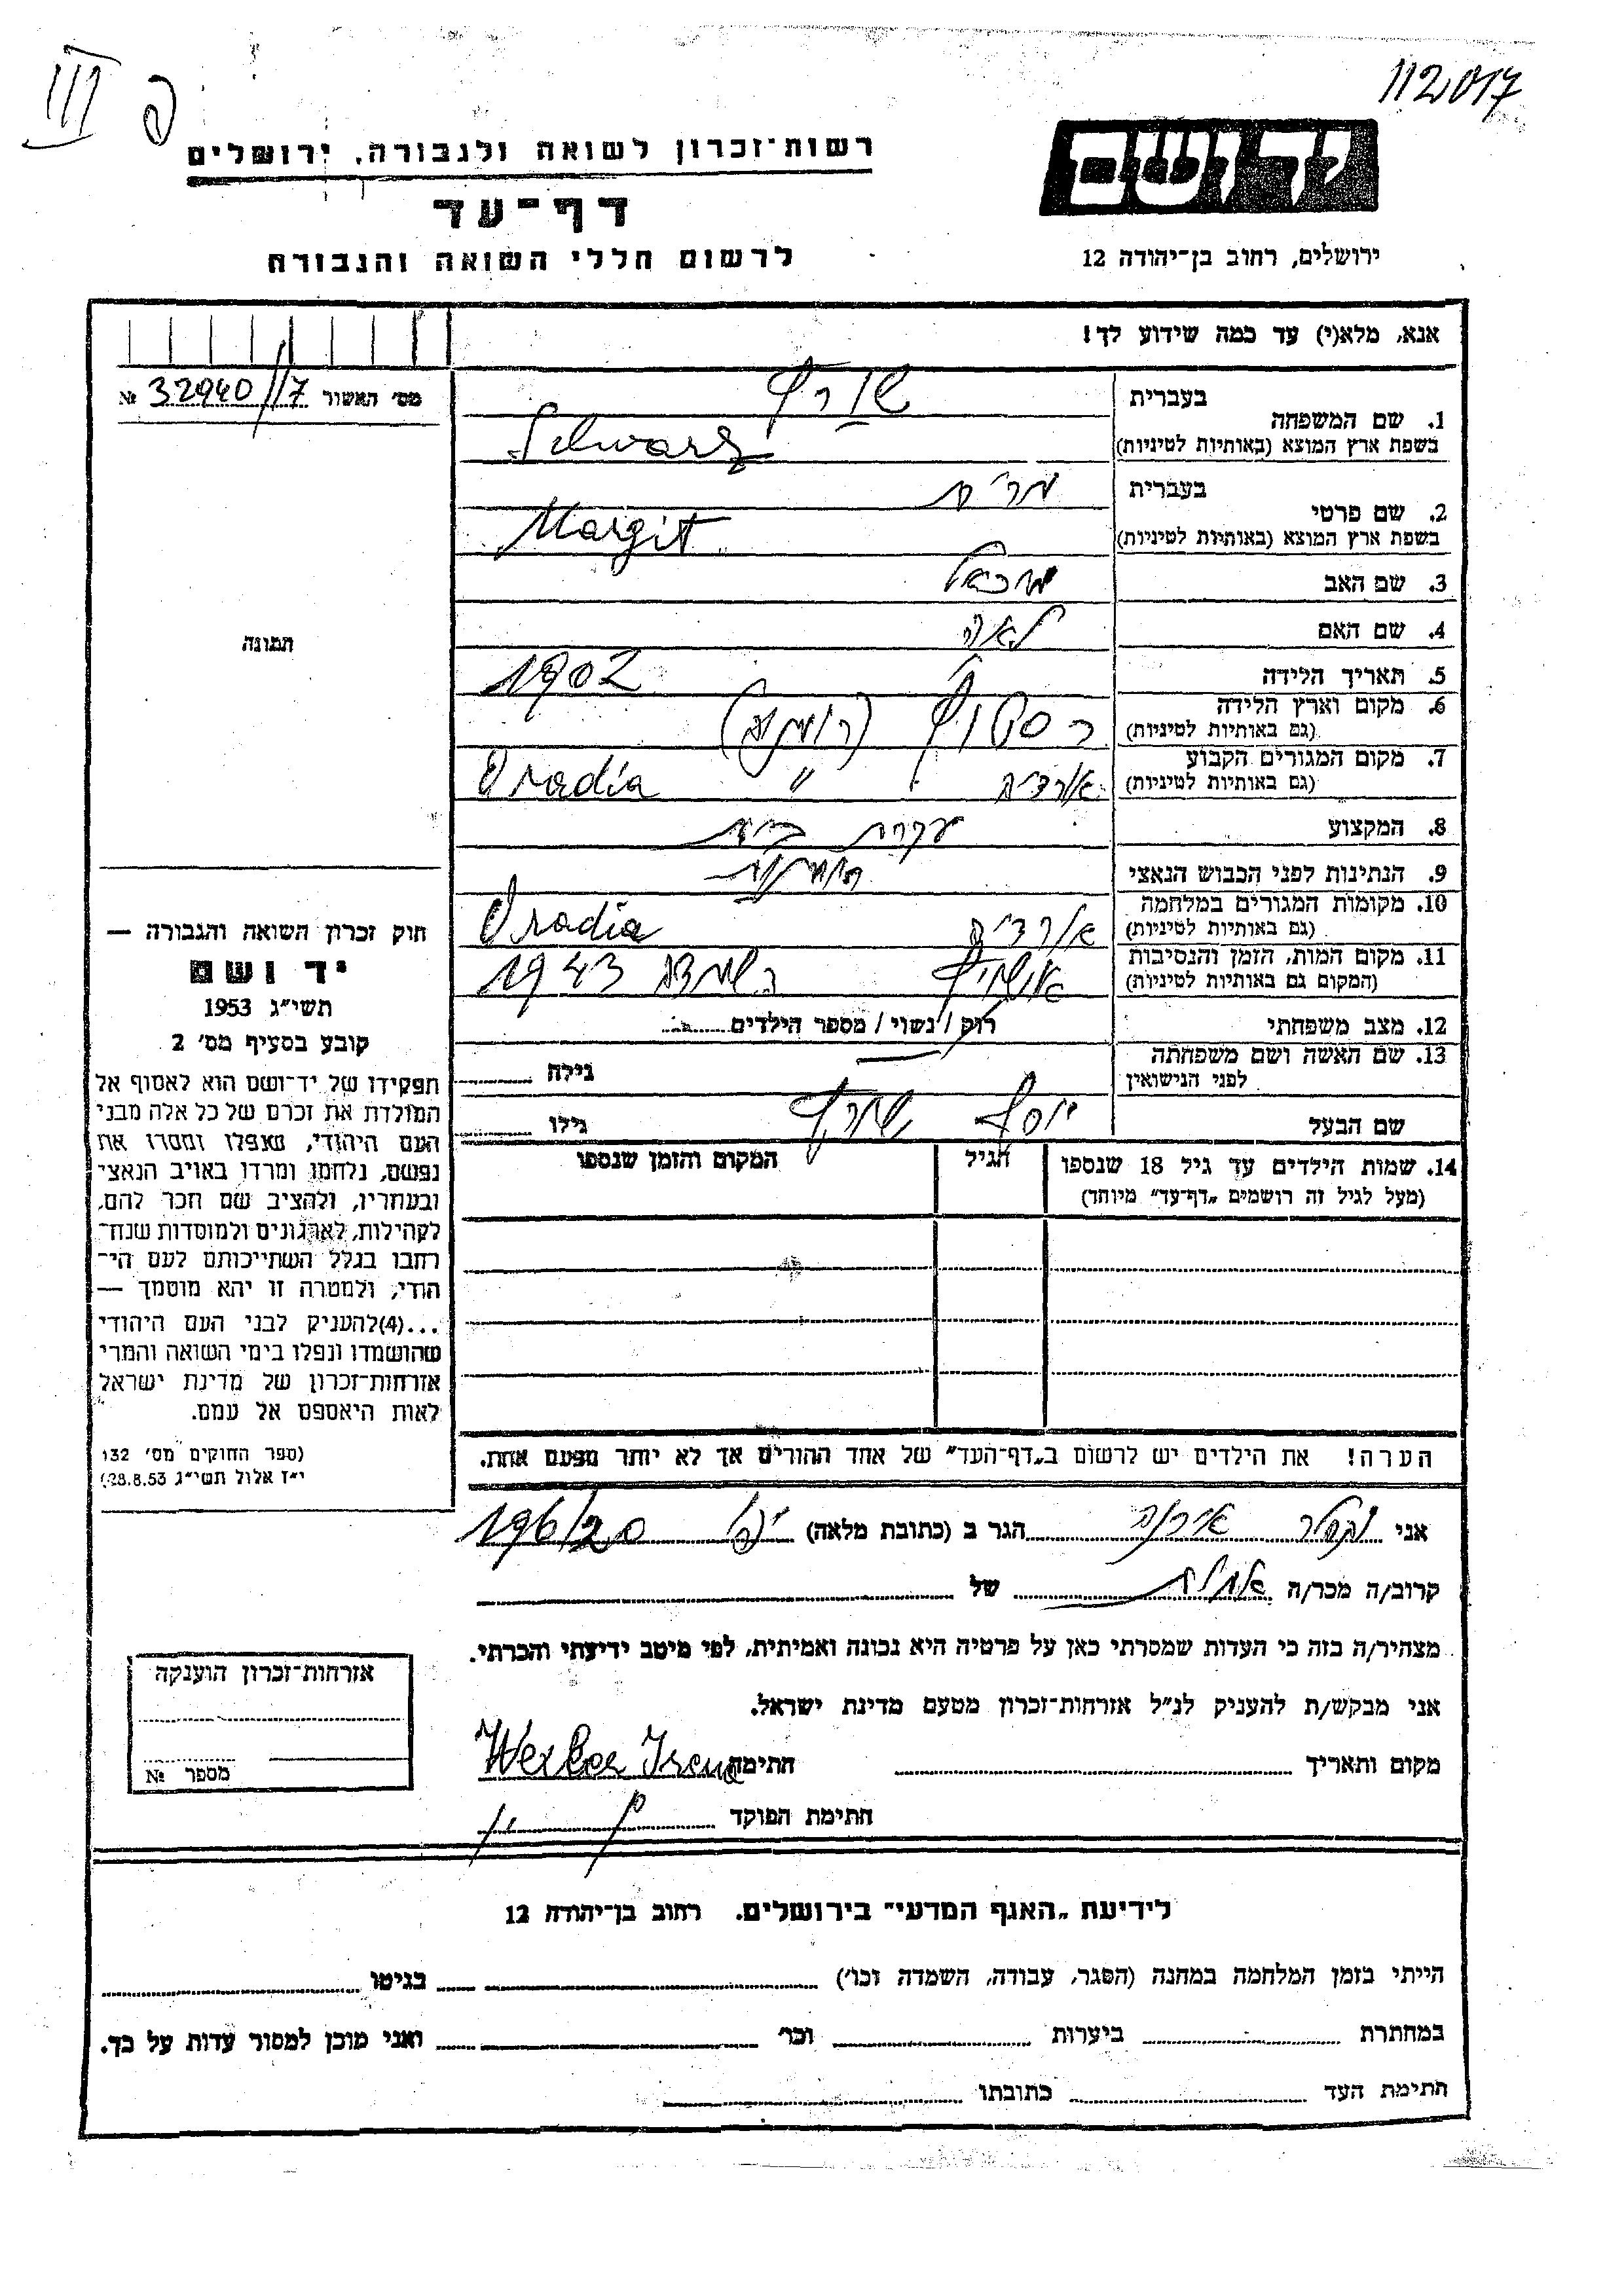 112017
III
פ
רשות־זכרון לשואה ולגבורה, ירושלים
דף־עד
לרשום חללי השואה והגבורה
ידושם
ירושלים, רחוב בן־יהודה 12
אנא, מלא(י) עד כמה שידוע לך!
מס׳ האשור 32940/17 №
תמונה
בעברית
1. שם המשפחה
בשפת ארץ המוצא (באותיות לטיניות) Schwarz
בעברית
2. שם פרטי
בשפת ארץ המוצא (באותיות לטיניות) Margit
3. שם האב מיכאל
4. שם האם לאה
5. תאריך הלידה 1902
6. מקום וארץ הלידה
(גם באותיות לטיניות)
7. מקום המגורים הקבוע Oradia "
(גם באותיות לטיניות)
8. המקצוע עקרת בית
9. הנתינות לפני הכבוש הנאצי
10. מקומות המגורים במלחמה Oradia
(גם באותיות לטיניות)
11. מקום המות, הזמן והנסיבות 1943
(המקום גם באותיות לטיניות)
12. מצב משפחתי רוק / נשוי / מספר הילדים
13. שם האשה ושם משפחתה
לפני הנישואין גילה
שם הבעל יוסף שורץ גילו
14. שמות הילדים עד גיל 18 שנספו הגיל המקום והזמן שנספו
(מעל לגיל זה רושמים „דף־עד״ מיוחד)
חוק זכרון השואה והגבורה —
יד ושם
תשי״ג 1953
קובע בסעיף מס׳ 2
תפקידו של יד־ושם הוא לאסוף אל
המולדת את זכרם של כל אלה מבני
העם היהודי, שנפלו ומסרו את
נפשם, נלחמו ומרדו באויב הנאצי
ובעוזריו, ולהציב שם וזכר להם,
לקהילות, לארגונים ולמוסדות שנח־
רחבו בגלל השתייכותם לעם הי־
הודי, ולמטרה זו יהא מוסמך —
...(4)להעניק לבני העם היהודי
שהושמדו ונפלו בימי השואה והמרי
אזרחות־זכרון של מדינת ישראל
לאות היאספם אל עמם.
(ספר החוקים מס׳ 132
י״ז אלול תשי״ג 28.8.53)
הערה! את הילדים יש לרשום ב„דף־העד״ של אחד ההורים אך לא יותר מפעם אחת.
אני וקסלר אירנה הגר ב (כתובת מלאה) יפו 196/20
קרוב/ה מכר/ה של
מצהיר/ה בזה כי העדות שמסרתי כאן על פרטיה היא נכונה ואמיתית, לפי מיטב ידיעתי והכרתי.
אני מבקש/ת להעניק לנ״ל אזרחות־זכרון מטעם מדינת ישראל.
מקום ותאריך חתימה
חתימת הפוקד
אזרחות־זכרון הוענקה
מספר №
לידיעת „האגף המדעי״ בירושלים. רחוב בן־יהודה 12
הייתי בזמן המלחמה במחנה (הסגר, עבודה, השמדה וכו׳) בגיטו
במחתרת ביערות וכו׳ ואני מוכן למסור עדות על כך.
חתימת העד כתובתו